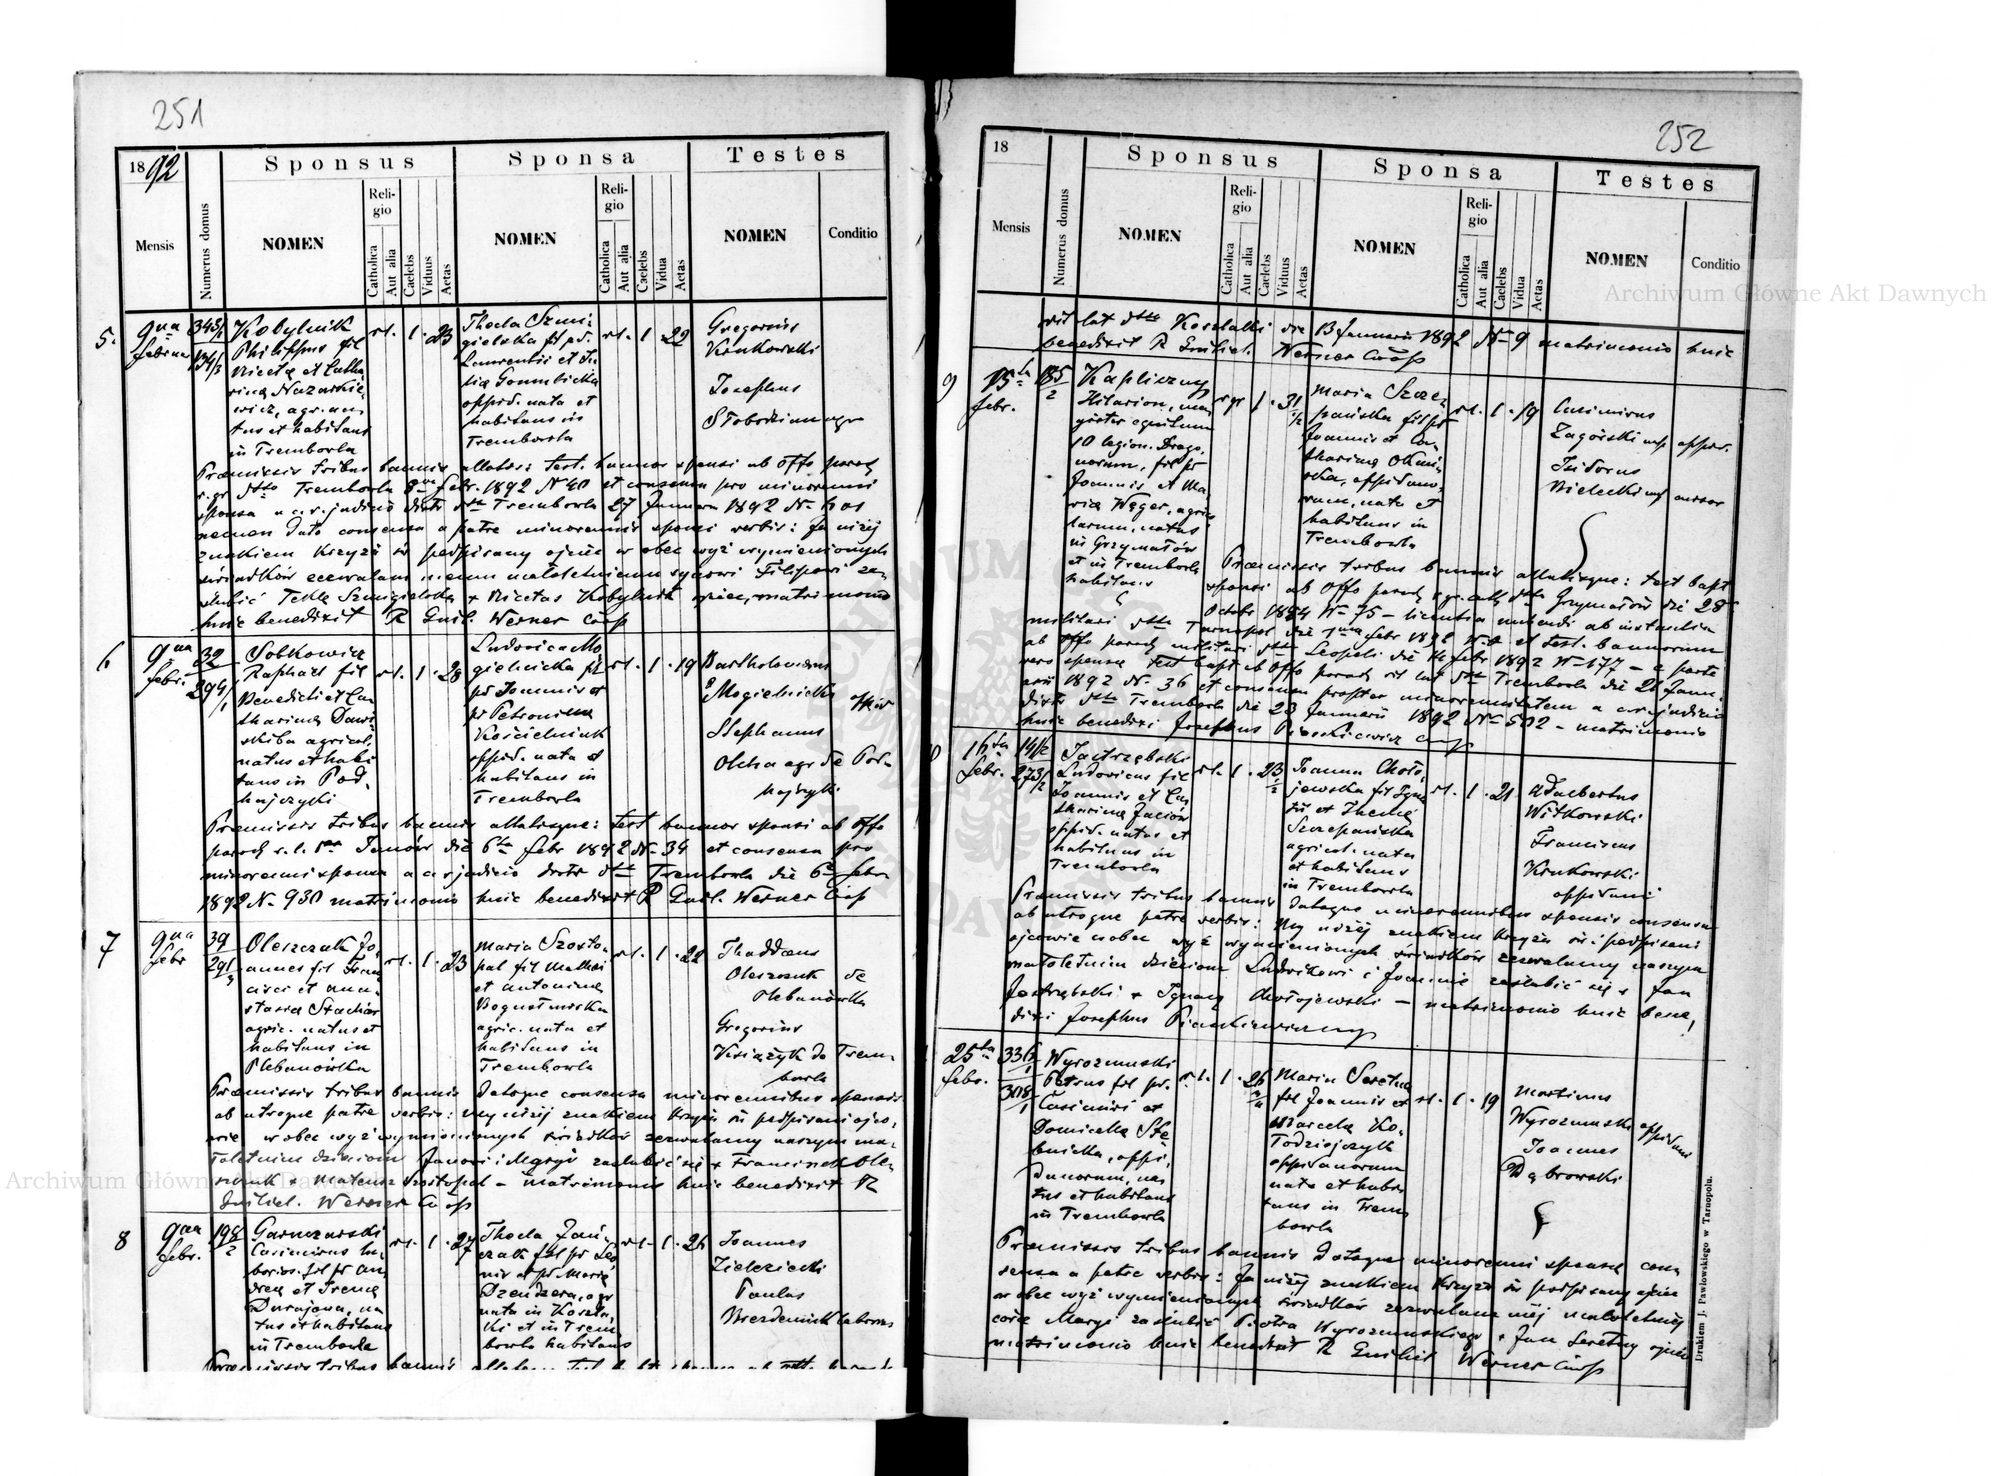 251
1892
Sponsus
Sponsa
Testes
Mensis
Numerus domus
NOMEN
Religio
Catholica
Aut alia
Caelebs
Viduus
Aetas
NOMEN
Religio
Catholica
Aut alia
Caelebs
Vidua
Aetas
NOMEN
Conditio
5.
9na
Kobylnik
Philippus fil
Nicetae et Catha
rinae Nazarkie
wicz, agr. na
tus et habitans
in Trembowla
rl. 1. 23
Thecla Szmi
gielska fil pd.
Laurentii et Ju
liae
oppid. nata et
habitans in
Trembowla
rl. 1 22
Gregorius
Krukowski
Josephus
Praemissis tribus bannis allatis: test. bannor sponsi ab offo paroch
r. gr. dtto Trembowla 8va febr. 1892 N 40 et consensu pro minorenni
sponsa a c.r. judicio distr dtto Trembowla 27 Januarii 1892 N.
necnon dato consensu a patre minorennis sponsi verbis: Ja niżej
znakiem krzyża św podpisany ojciec w obec wyż wymienionych
świadków zezwalam memu małoletniemu synowi Filipowi za
ślubić Teklę Szmigielską + Nicetas Kobylnik ojciec, matrimonio
huic benedixit R Guil. Werner Coop
6
9na
febr.
32
294/1
Sobkowicz
Raphael fil
Benedicti et Ca
tharinae Dawi
skiba agricol.
natus et habi
tans in Pod
hajczyki
rl. 1. 28
Ludovica Mo
gielnicka fil
pd Joannis et
pd Petronellae
Kościelniuk
oppid. nata et
habitans in
Trembowla
rl. 1. 19
Bartholomaeus
Mogielnicki
Stephanus
Olcha agr de Pod
hajczyki
Praemissis tribus bannis allatisque: test bannor sponsi ab offo
paroch r.l. Janów die 6ta febr 1892 N. 34 et consensu pro
minorenni sponsa a c r judicio distr dtto Trembowla die 6ta febr.
1892 N. 930 matrimonio huic benedixit R Guil. Werner Coop
7
9na
febr
39
291
Oleszczuk Jo
annes fil Fran
cisci et Ana
stasiae Stachów
agric. natus et
habitans in
Plebanówka
rl. 1. 23
Maria Szosto
pal fil Mathaei
et Antoninae
agric. nata et
habitans in
Trembowla
rl. 1. 22
Thaddaeus
Oleszczuk de
Plebanówka
Gregorius
Książyk de Trem
bowla
Praemissis tribus bannis datoque consensu minorennibus sponsis
ab utroque patre verbis: my niżej znakiem krzyża św podpisani ojco
wie w obec wyż wymienionych świadków zezwalamy naszym ma
łoletnim dzieciom Janowi i Maryi zaślubić się + Franciszek Ole
szczuk + Mateusz Szostopal – matrimonio huic benedixit R
Guiliel. Werner Coop
8
9na
febr.
198
2
Garnczarski
Casimirus la
borios. fil pd An
dreae et Irenae
Durajowa, na
tus et habitans
in Trembowla
rl. 1. 27
Thecla Jań
czak fil pd Le
nis et pd Mariae
Dzendzera, agr
nata in Koszla
ki et in Trem
bowla habitans
rl. 1. 26
Joannes
Zieleziecki
Paulus
252
18
Sponsus
Sponsa
Testes
Mensis
Numerus domus
NOMEN
Religio
Catholica
Aut alia
Caelebs
Viduus
Aetas
NOMEN
Religio
Catholica
Aut alia
Caelebs
Vidua
Aetas
NOMEN
Conditio
rit lat dtto Koszlaki die 13 Januarii 1892 N 9 matrimonio huic
benedixit R Guiliel. Werner Coop
9
15ta
febr.
185
2
Kapliczny
Hilarion, ma
gister equitum
10 legion. Drago
norum, fil pd
Joannis et Ma
riae Węger, agrico
larum, natus
in Grzymałów
et in Trembowla
habitans
r gr 1. 31 1/2
Maria Szcze
pańska fil pd
Joannis et Ca
tharinae
oppidano
rum, nata et
habitans in
Trembowla
rl. 1. 19
Casimirus
Zagórski mp oppid.
Isidorus
Bielecki mp
Praemissis tribus bannis allatisque: test bapt
sponsi ab offo paroch r gr. cath dtto Grzymałów die 28
Octobr 1884 N 75 – licentia nubendi ab instantia
militari dtto Tarnopol die 7ma febr 1892 et test. bannorum
ab offo paroch militari dtto Leopoli die 14 febr 1892 N 177 – e parte
vero sponsae test bapt ab offo paroch rit lat dtto Trembowla die 21 Janu
arii 1892 N. 36 et consensu propter minorennitatem a c r judicio
distr dtto Trembowla die 23 Januarii 1892 N 502 – matrimonio
huic benedixi Josephus Piaskiewicz
16ta
febr.
141/2
273/2
Jastrzębski
Ludovicus fil
Joannis et Ca
tharinae Faciów
oppid. natus et
habitans in
Trembowla
rl. 1. 23
Joanna Choło
jewska fil Igna
tii et Theclae
Szczepańska
agricol. nata
et habitans
in Trembowla
rl. 1. 21
Adalbertus
Witkowski
Franciscus
Krukowski
oppidani
Praemissis tribus bannis datoque minorennibus sponsis consensu
ab utroque patre verbis: My niżej znakiem krzyża św podpisani
ojcowie w obec wyż wymienionych świadków zezwalamy naszym
małoletnim dzieciom Ludwikowi i Joannie zaślubić się + Jan
Jastrzębski + Ignacy Chołojewski – matrimonio huic bene
dixi Josephus Piaskiewicz
25ta
febr.
336/1
308/1
Wyrozumski
Petrus fil pd.
Casimiri et
Domicellae Ste
bnicka, oppi
danorum, na
tus et habitans
in Trembowla
rl. 1. 26
Maria Seretna
fil Joannis et
Marcelae Ko
łodziejczyk
oppidanorum
nata et habi
tans in Trem
bowla
rl. 1. 19
Martinus
Wyrozumski
Joannes
Dąbrowski
oppidani
Praemissis tribus bannis datoque minorenni sponsae con
sensu a patre verbis: Ja niżej znakiem krzyża św podpisany ojciec
w obec wyż wymienionych świadków zezwalam mej małoletniej
córce Maryi zaślubić Piotra Wyrozumskiego + Jan Seretny ojciec
matrimonio huic benedixit R Guiliel Werner Coop
Drukiem J. Pawłowskiego w Tarnopolu.
Archiwum Główne Akt Dawnych
Archiwum Główne Akt Dawnych
ARCHIWUM GŁÓWNE AKT DAWNYCH